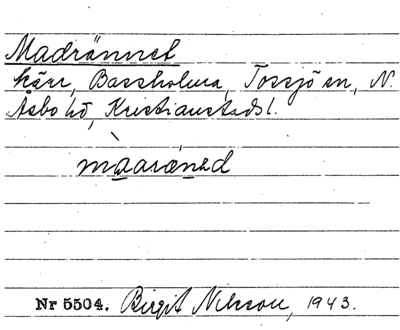 Madrännet
kärr, Bassholma, Tossjö sn, N.
Åsbo hd, Kristianstads l.
màaräned
Nr 5504. Birgit Nilsson, 1943.